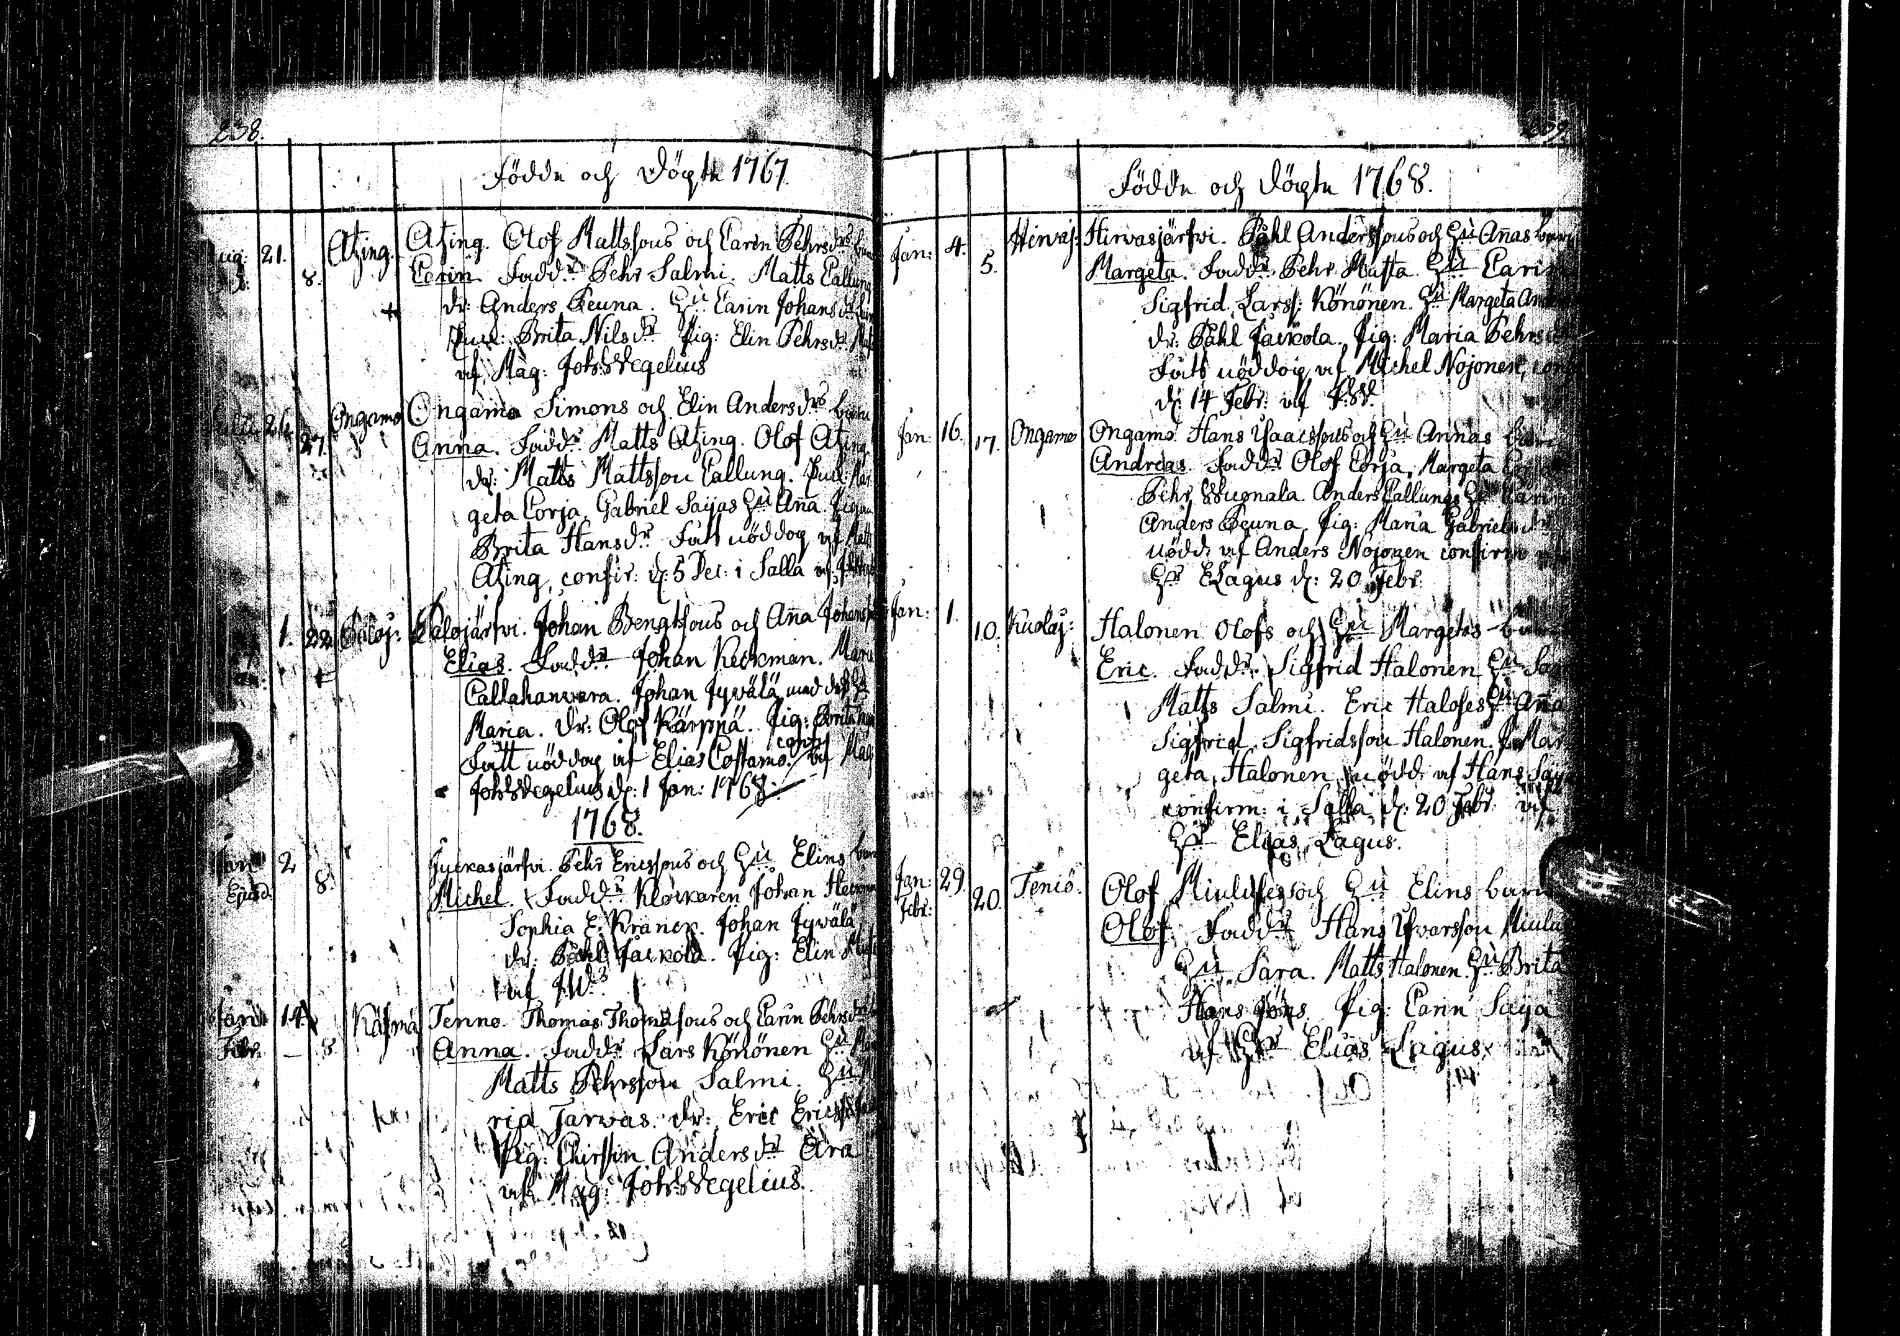 238.
Födde och Döpte 1767.
21. 8. Atzing. Atzing. Olof Mattssons och Carin Pehrsdrs
Carin. Fadd: Pehr Salmi. Matts Callung
dr: Anders Peuna. Hu Carin Johans dr
Brita Nils dr Pig: Elin Pehrsdr
af Mag: Joh: Wegelius
26. 27. Ongamo Ongamo Simons och Elin Anders drs barn
Anna. Fadd: Matts Atzing. Olof Atzing
dr: Matts Mattsson Callung. Mar
geta Corja, Gabriel Saijas Hu Aña.
Brita Hans dr Fått nöddop af Matts
Atzing, confir: d: 5 Dec: i Salla af
1. 22 Paloj: Palojärfvi. Johan Bengtssons och Aña Johans
Elias. Fadd: Johan Keckman. Mar
Callahanvara. Johan Jyvälä med dess Hu
Maria. dr: Olof Kärppä. Pig: Brita
Fått nöddop af Elias Costamo. conf af Mag
Joh: Wegelius d: 1 Jan: 1768.
1768.
Jan 2 8. Juckasjärfvi. Pehr Ericssons och Hu Elins barn
Ejusd.
Michel. Fadd: Klockaren Johan Heckman
Sophia E. Kranck. Johan Jyvälä
dr: Påhl Jackola. Pig: Elin
af JW:s
Jan 14 Käsmä Tenno. Thomas Thomæsons och Carin Pehrsdrs
Febr. — 8 Anna. Fadd: Lars Könönen Hu
Matts Pehrsson Salmi. Hu
rid Tarvas. dr: Eric Ericsson
Pig: Chirstin Anders dr Ära
af Mag: Joh: Wegelius.
Födde och Döpte 1768.
Jan: 4. 5. Hirvaj: Hirvasjärfvi. Påhl Anderssons och Hu Añas barn
Margeta. Fadd: Pehr Matta. Hu Carin
Sigfrid Larss: Könönen. Hu Margeta And
dr: Påhl Jackola. Pig: Maria Pehrsdr
Fått nöddop af Michel Nojonen, conf
d: 14 Febr: af J:W
Jan: 16. 17. Ongamo Ongamo. Hans Isaacssons och Hu Annas barn
Andreas. Fadd: Olof Corja, Margeta Corja
Pehr Wuonala. Anders Callungs Hu Carin
Anders Peuna, Pig: Maria Gabriels dr
nödd. af Anders Nojonen confirm af
Hr E Lagus d: 20 Febr.
Jan: 1. 10. Kuolaj: Halonen Olofs och Hu Margetas barn
Eric. Fadd: Sigfrid Halonen Hu
Matts Salmi. Eric Haloses Hu Aña
Sigfrid Sigfridsson Halonen. P: Mar
geta Halonen. nödd. af Hans Saija
confirm: i Salla d: 20 Febr. af
Hr Elias Lagus.
Jan: 29. Teniö. Olof och Hu Elins barn
Febr: 20. Olof. Fadd: Hans Ifvarsson
Hu Sara. Matts Halonen. Hu Brita
Hans Jöns. Pig: Carin Saija
af Hr Elias Lagus.